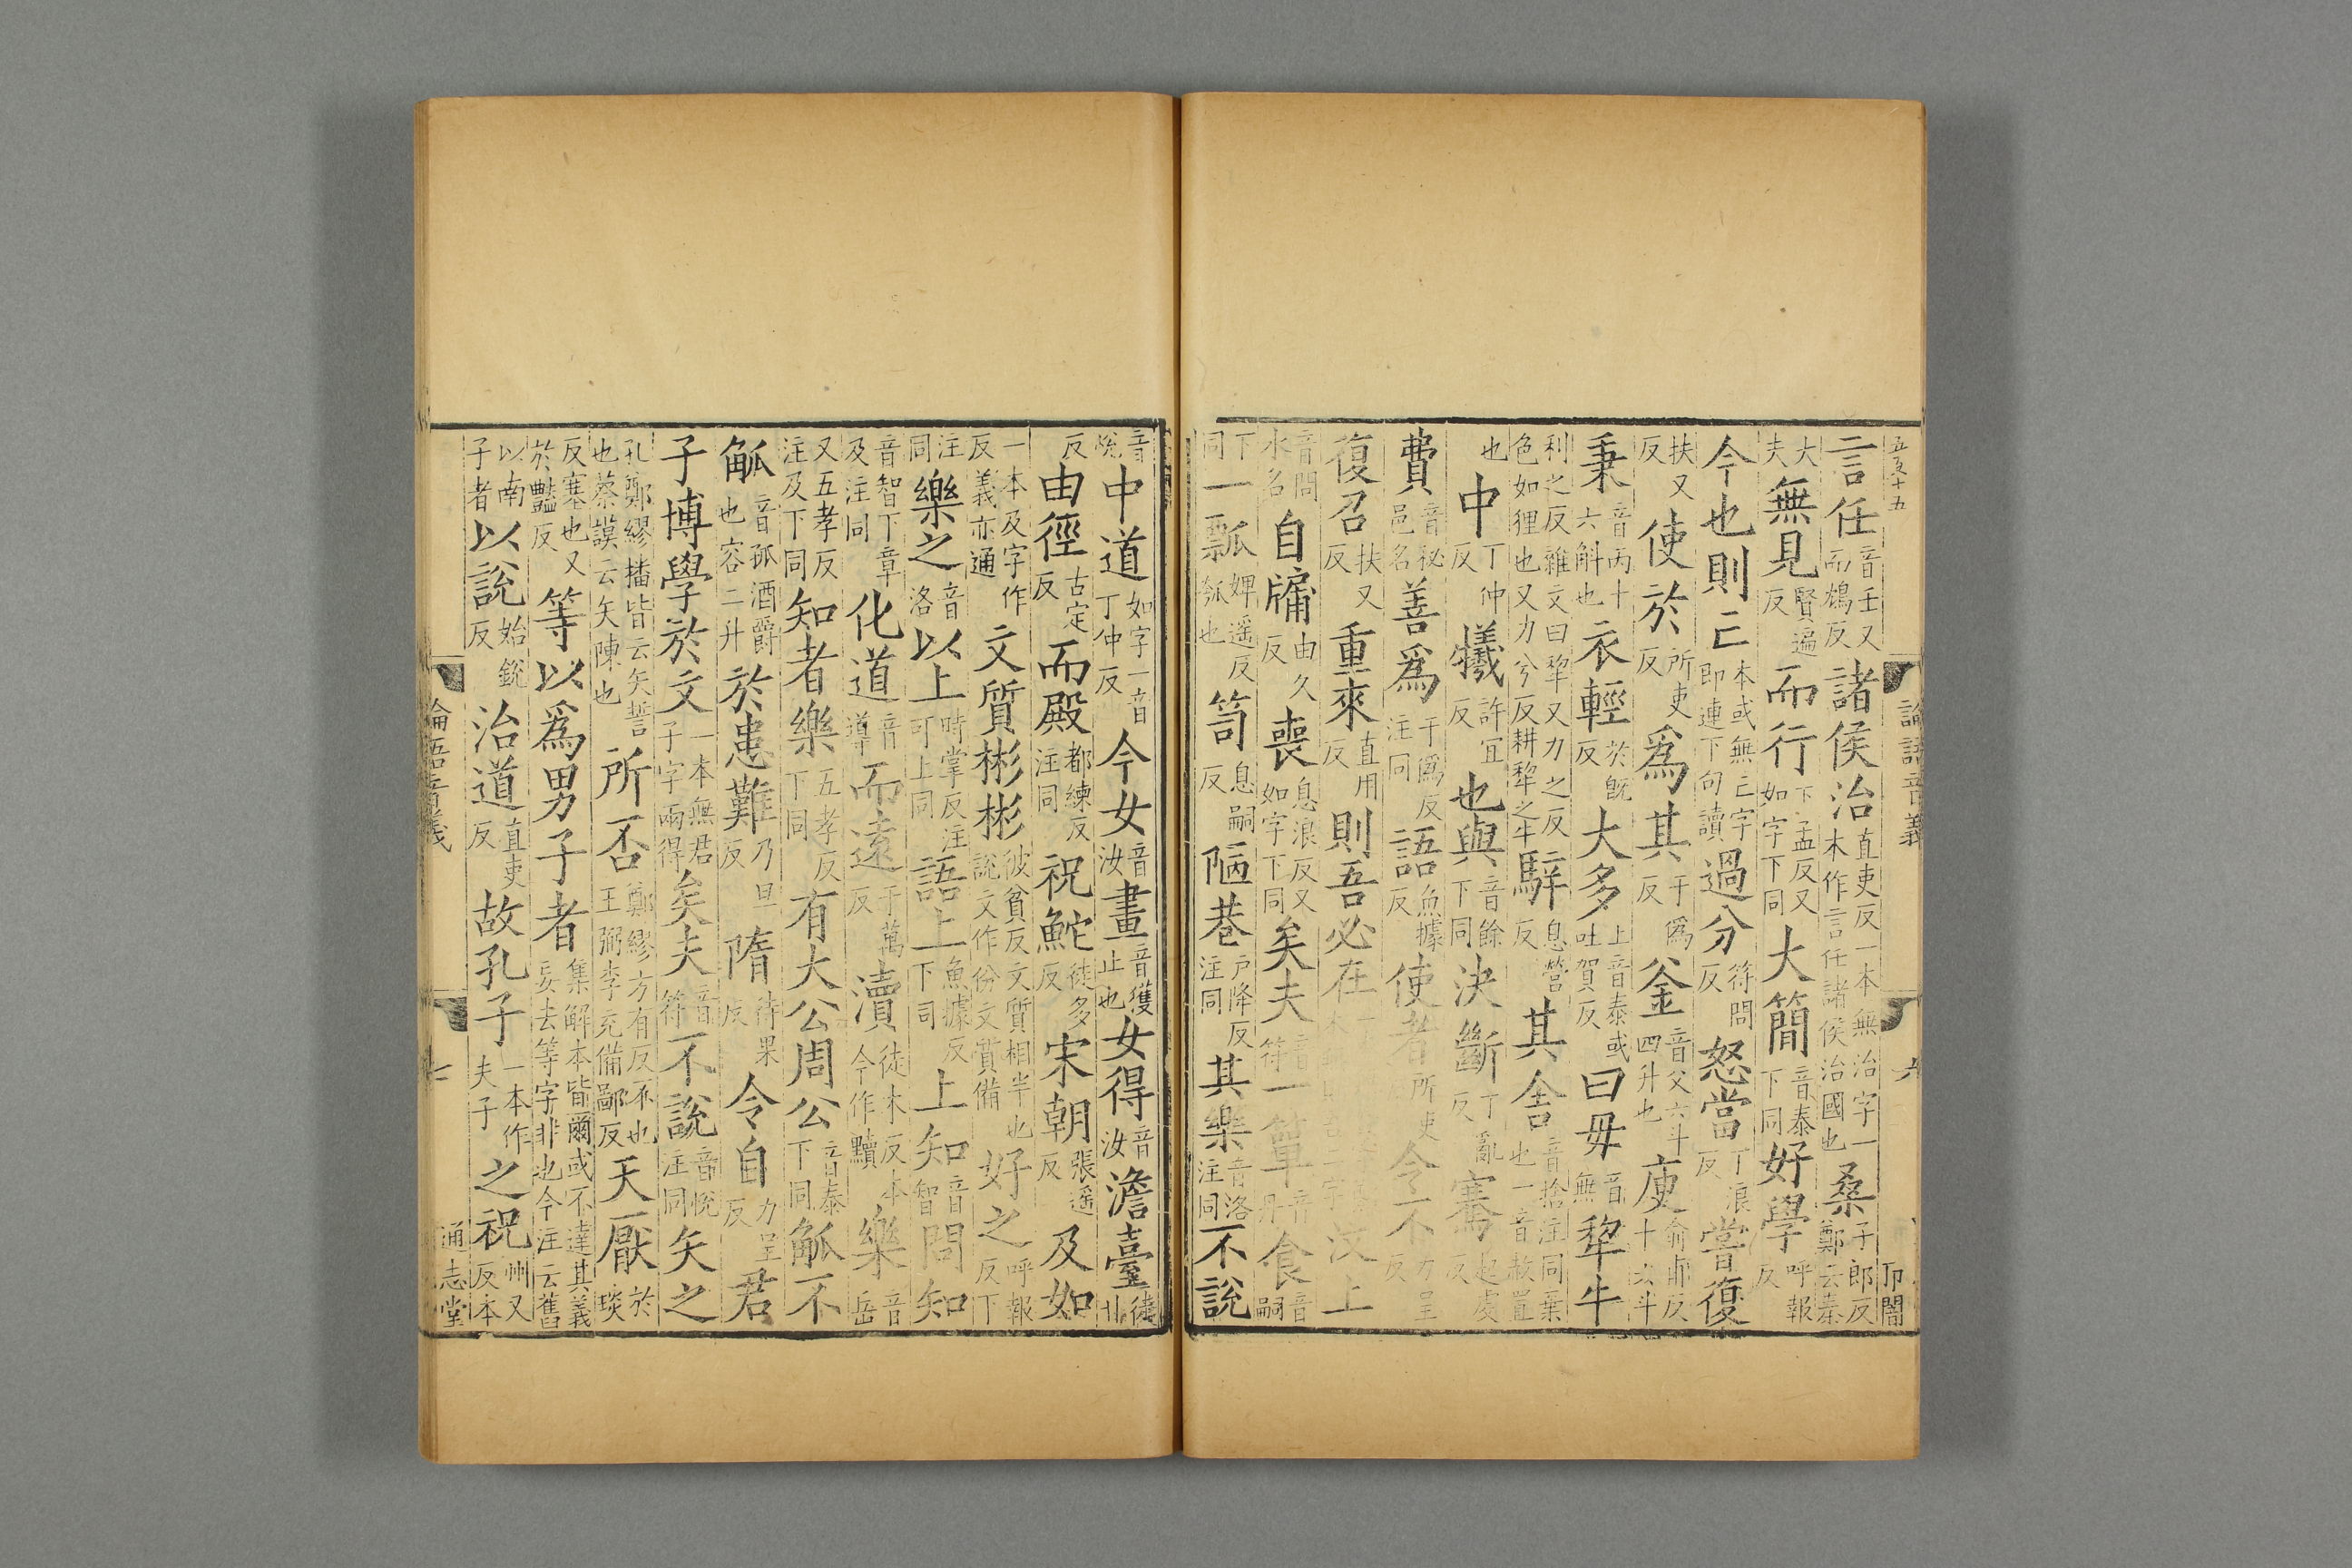 五百十五
論語音義
六
卬閶
言任音壬又而鴆反諸侯治直吏反一本無治字一本作言任諸侯治國也桑子郎反鄭云秦
大夫無見賢遍反而行下孟反又如字下同大簡音泰下同好學呼報反
今也則亡本或無亡字即連下句讀過分符問反怒當丁浪反嘗復
扶又反使於所吏反爲其于僞反釜音父六斗四升也庾俞甫反十六斗
秉音丙十六斛也衣輕於旣反大多上音泰或吐賀反曰毋音無犂牛
利之反雜文曰犂又力之反色如狸也又力兮反耕犂之牛騂息營反其舍音捨注同棄也一音赦置
也中丁仲反犧許宜反也與音餘下同決斷丁亂反騫起虔反
費音祕邑名善爲于僞反注同語魚據反使者所吏令不力呈反
復召扶又反重來直用反則吾必在汶上
音問水名自牖由久反喪息浪反又如字下同矣夫音符一簞音丹食音嗣
下同一瓢婢遥反瓠也笥息嗣反陋巷戶降反注同其樂音洛注同不說
音悅中道如字一音丁仲反今女音汝畫音獲止也女得音汝澹臺徒
反由徑古定反而殿都練反注同祝鮀徒多反宋朝張遥反及如
一本及字作反義亦通文質彬彬彼貧反文質相半也說文作份文質備好之呼報反下
注同樂之音洛以上時掌反注可上同語上魚據反下同上知音智問知
音智下章及注同化道音導而遠于萬反瀆徒木反本今作黷樂音岳
又五孝反注及下同知者樂五孝反下同有大公周公音泰下同觚不
觚音孤酒爵也容二升於患難乃旦反隋待果反令自力呈反君
子博學於文一本無君子字兩得矣夫音符不說音悅注同矢之
孔鄭繆播皆云矢誓也蔡謨云矢陳也所否鄭繆方有反不也王弼李充備鄙反天厭於琰
反塞也又於豔反等以爲男子者集解本皆爾或不達其義妄去等字非也今注云舊
以南子者以說始銳反治道直吏反故孔子一本作夫子之祝州又反本
論語音義
七
通志堂